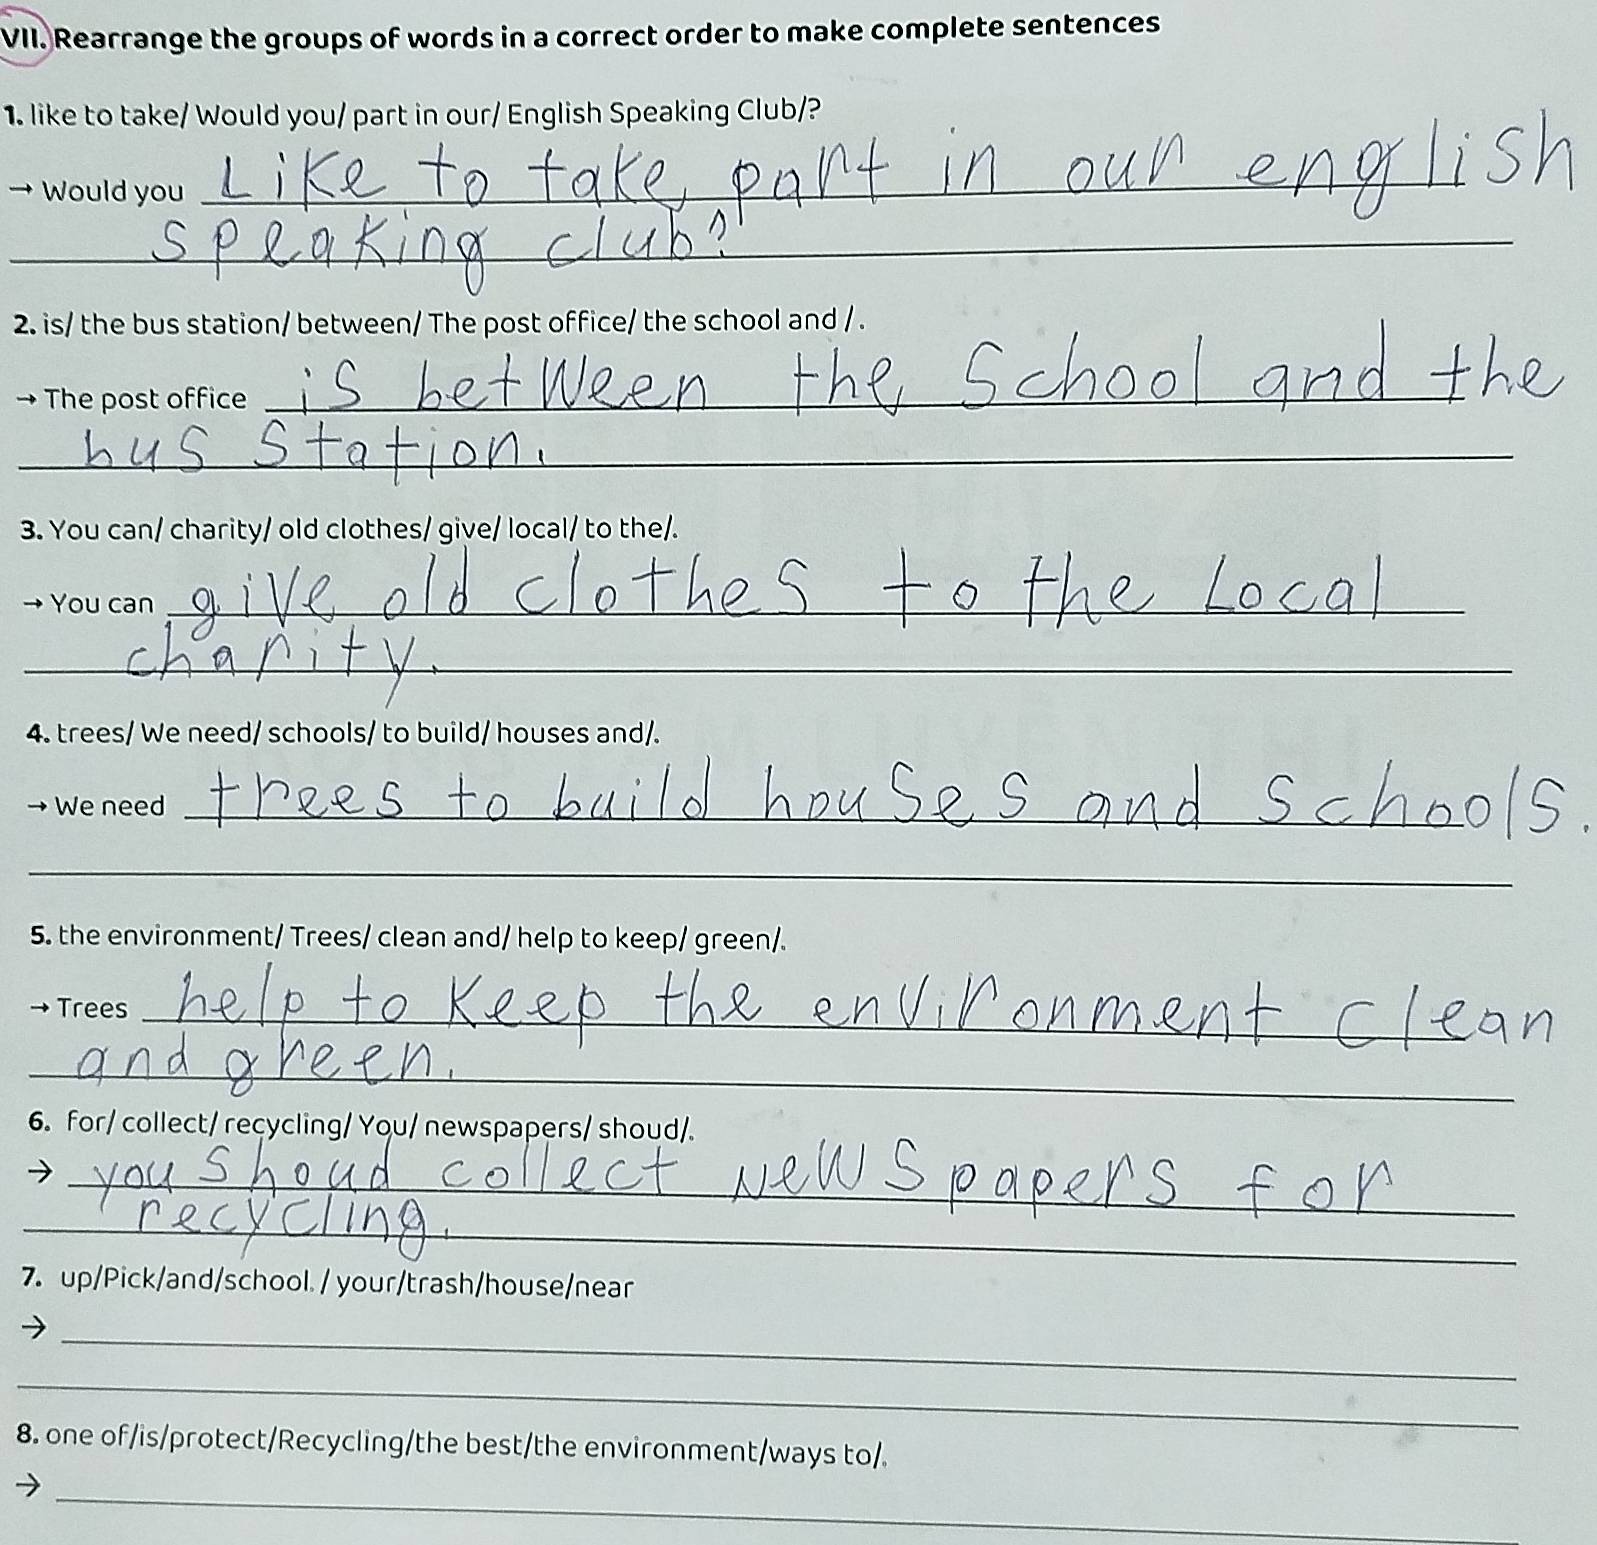 VII. Rearrange the groups of words in a correct order to make complete sentences
1. like to take/ Would you/ part in our/ English Speaking Club/?
→ Would you Like to take part in our english
speaking club?
2. is/ the bus station/ between/ The post office/ the school and /.
→ The post office is between the School and the
bus station.
3. You can/ charity/ old clothes/ give/ local/ to the/.
→ You can give old clothes to the Local
charity.
4. trees/ We need/ schools/ to build/ houses and/.
→ We need trees to build houses and schools.
5. the environment/ Trees/ clean and/ help to keep/ green/.
→ Trees help to keep the environment clean
and green.
6. for/ collect/ recycling/ You/ newspapers/ shoud/.
→ you shoud collect newspapers for
recycling.
7. up/Pick/and/school. / your/trash/house/near
→
8. one of/is/protect/Recycling/the best/the environment/ways to/.
→